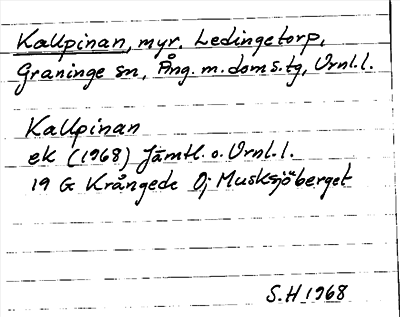 Kallpinan, myr. Ledingetorp,
Graninge sn, Ång. m. doms.tg, Vrnl.l.
Kallpinan
ek (1968) Jämtl. o. Vrnl.l.
19 G Krångede 0j Musksjöberget
S.H 1968